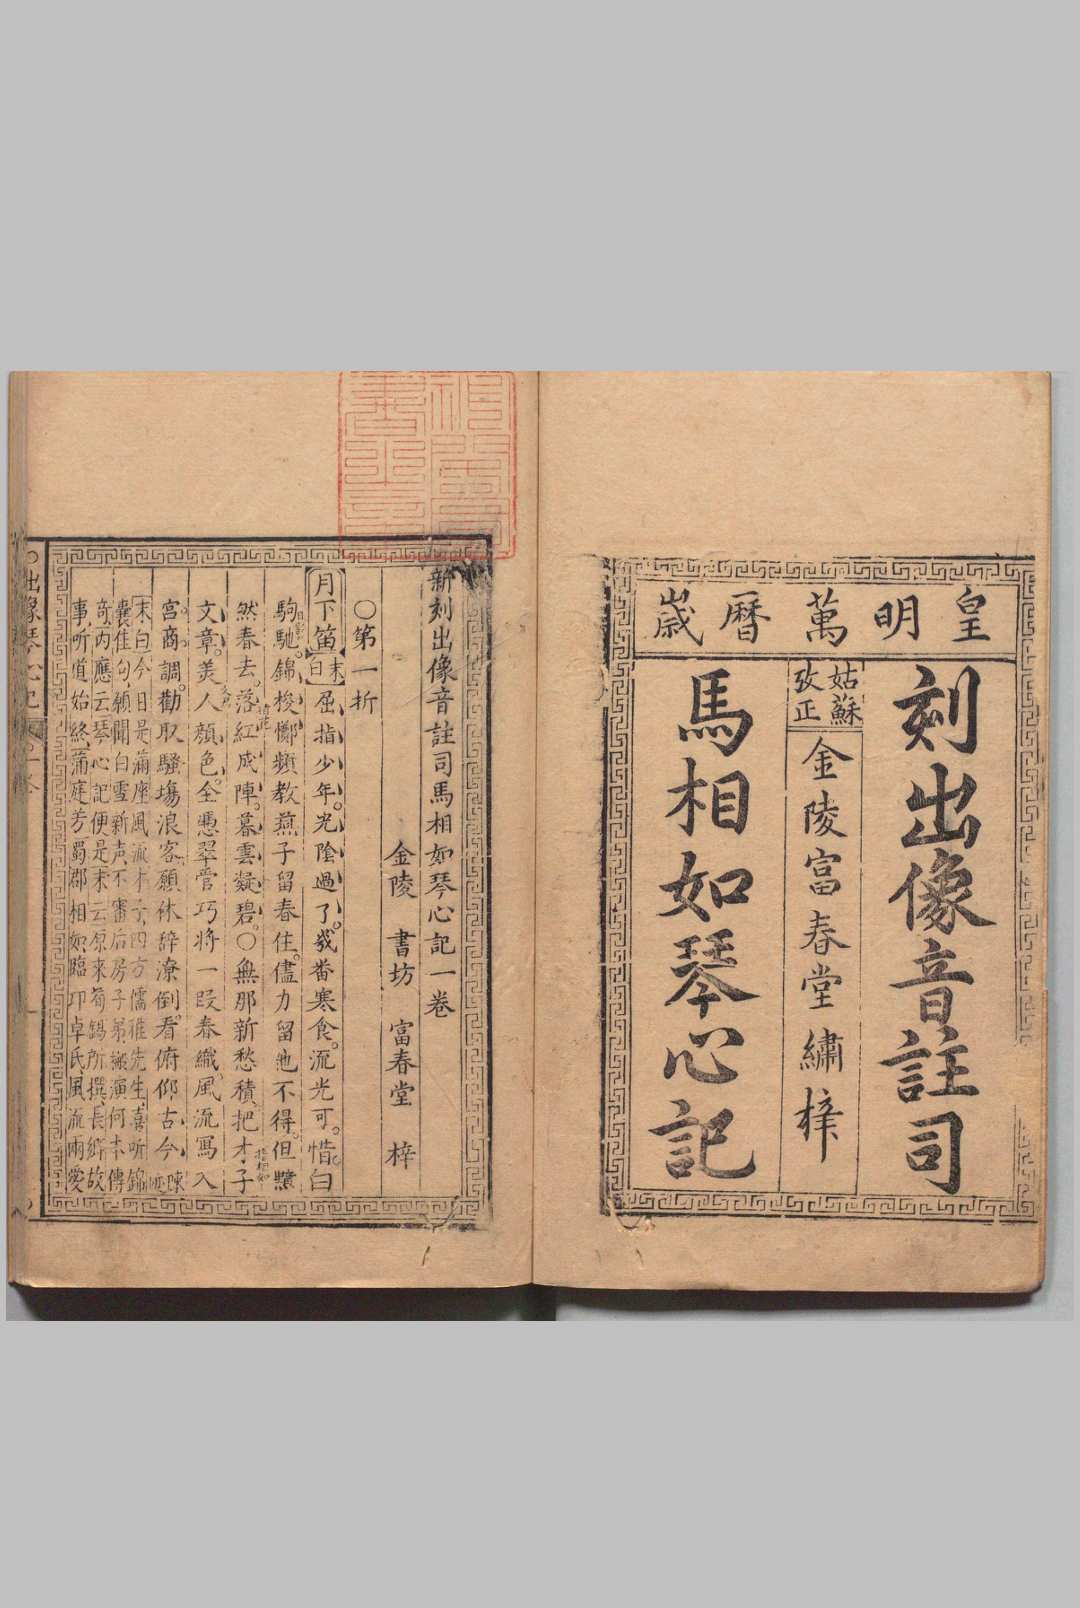 皇明萬曆歲
刻出像音註司
姑蘇
攷正
金陵富春堂繡梓
馬相如琴心記
新刻出像音註司馬相如琴心記一卷
金陵 書坊 富春堂 梓
○第一折
月下笛 末白 屈指少年。光陰過了。幾畨寒食。流光可。惜白
駒馳。錦梭擲頻教燕子留春住。儘力留他不得。但
然春去。落紅成陣。暮雲凝碧。○無那新愁積把才子
文章。美人顔色。全憑翠管巧將一段春織。風流寫入
宮商調。勸取騷場浪客。願休辞潦倒。看俯仰古今陳
末白今日是滿座風流才子四方儒雅先生喜听錦
囊佳句願聞白雪新声不審后房子弟搬演何本傳
奇内應云琴心記便是末云原來荀錫所撰長卿故
事听道始終蒲庭芳蜀郡相如臨卭卓氏風流兩愛
出像琴心記